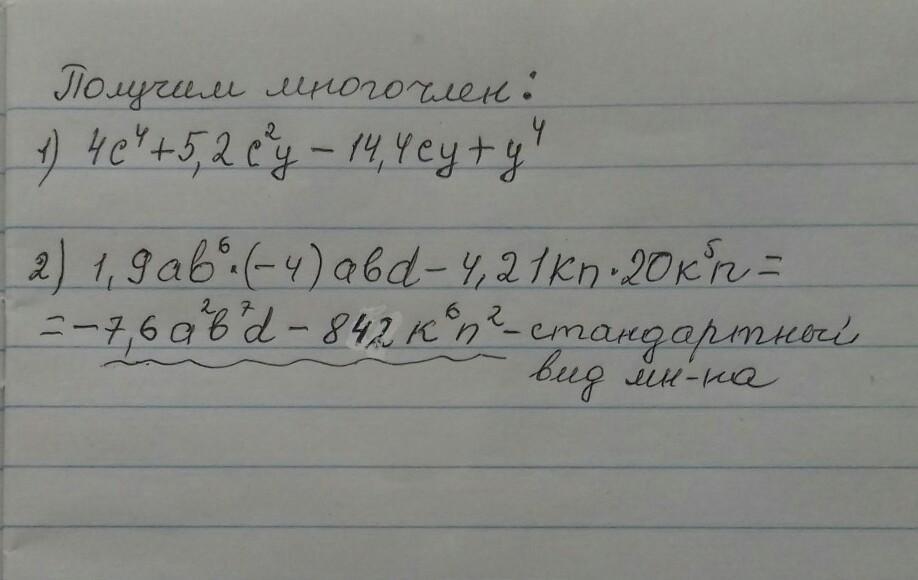 Получим многочлен:
1) 4c⁴+5,2c²y-14,4cy+y⁴
2) 1,9ab⁶·(-4)abd-4,21kn·20k⁵n=
=-7,6a²b⁷d-842k⁶n²-стандартный
вид мн-на